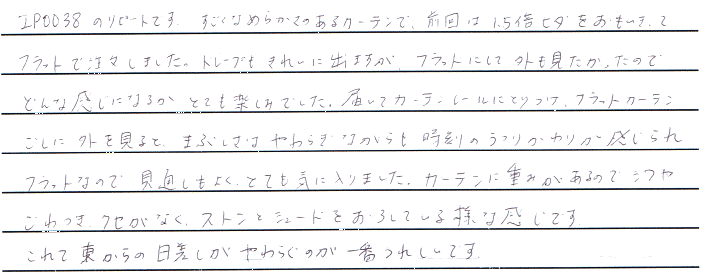 IP0038のリピートです。すごくなめらかさのあるカーテンで、前回は1.5倍ヒダをおもいきって
フラットで注文しました。ドレープもきれいに出ますが、フラットにして外も見たかったので
どんな感じになるかとても楽しみでした。届いてカーテンレールにとりつけ、フラットカーテン
ごしに外を見ると、まぶしさはやわらぎながらも時刻のうつりかわりが感じられ
フラットなので見通しもよく、とても気に入りました。カーテンに重みがあるのでシワや
ごわつき、クセがなく、ストンとシェードをおろしている様な感じです
これで東からの日差しがやわらぐのが一番うれしいです。